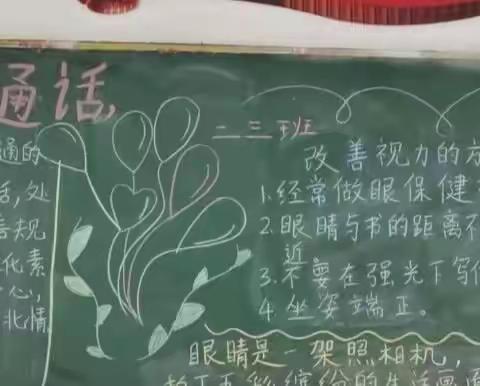 通话
二三班
通的
话,处
规
化素
心,
北情
改善视力的方
1.经常做眼保健
2.眼睛与书的距离不
近
3.不要在强光下写
4.坐姿端正。
眼睛是一架照相机,
五彩缤纷的生活画